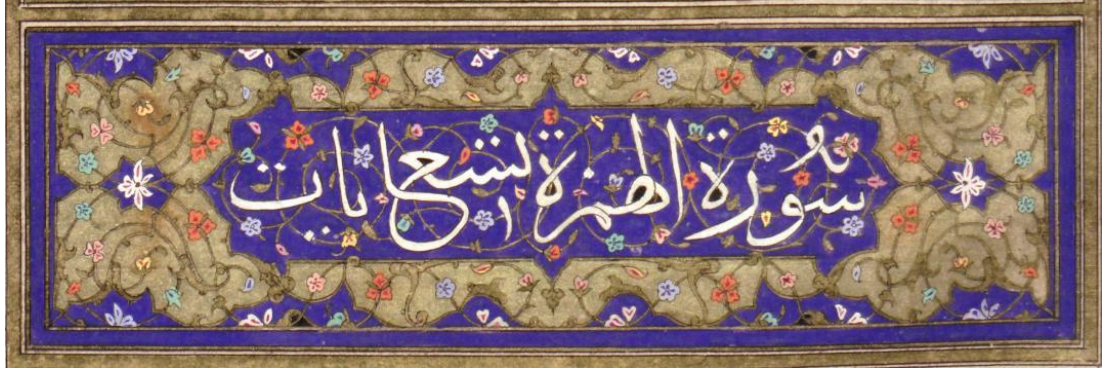 سورة الهمزة تسع ايات